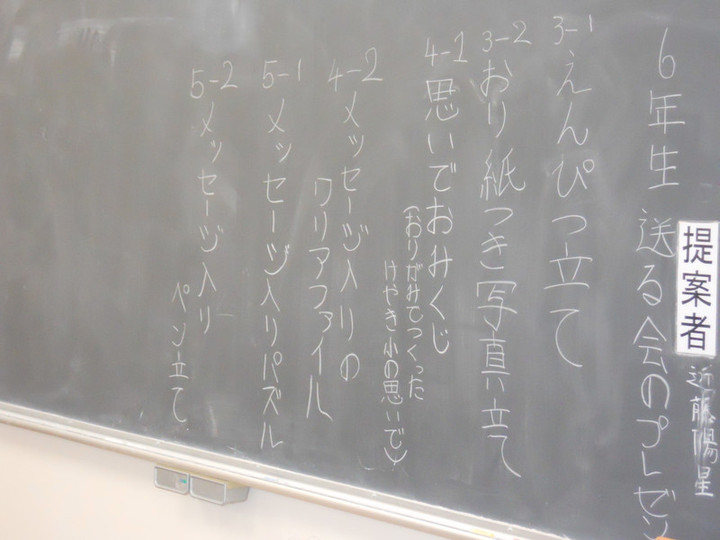 提案者
近藤陽星
6年生 送る会のプレゼン
3-1 えんぴつ立て
3-2 おり紙つき写真立て
4-1 思いでおみくじ
(おりがみでつくった
けやき小の思いで)
4-2 メッセージ入りの
クリアファイル
5-1 メッセージ入りパズル
5-2 メッセージ入り
ペン立て